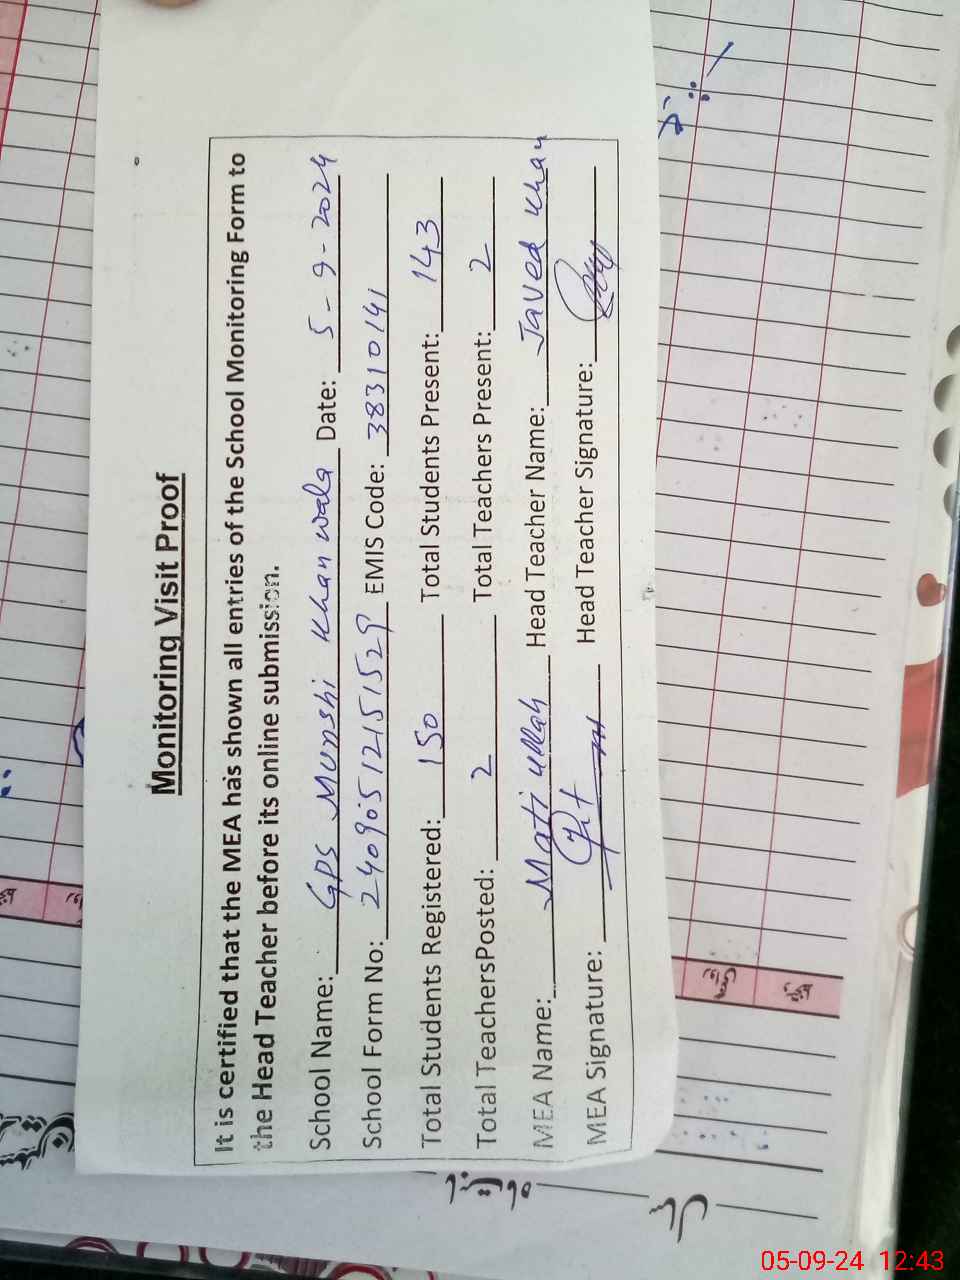 Monitoring Visit Proof
It is certified that the MEA has shown all entries of the School Monitoring Form to
the Head Teacher before its online submission.
School Name: GPS Munshi Khan wala Date: 5-9-2024
School Form No: 24090512151529 EMIS Code: 38310141
Total Students Registered: 150 Total Students Present: 143
Total TeachersPosted: 2 Total Teachers Present: 2
MEA Name: Mati ullah Head Teacher Name: Javed Khan
MEA Signature: Head Teacher Signature:
05-09-24 12:43